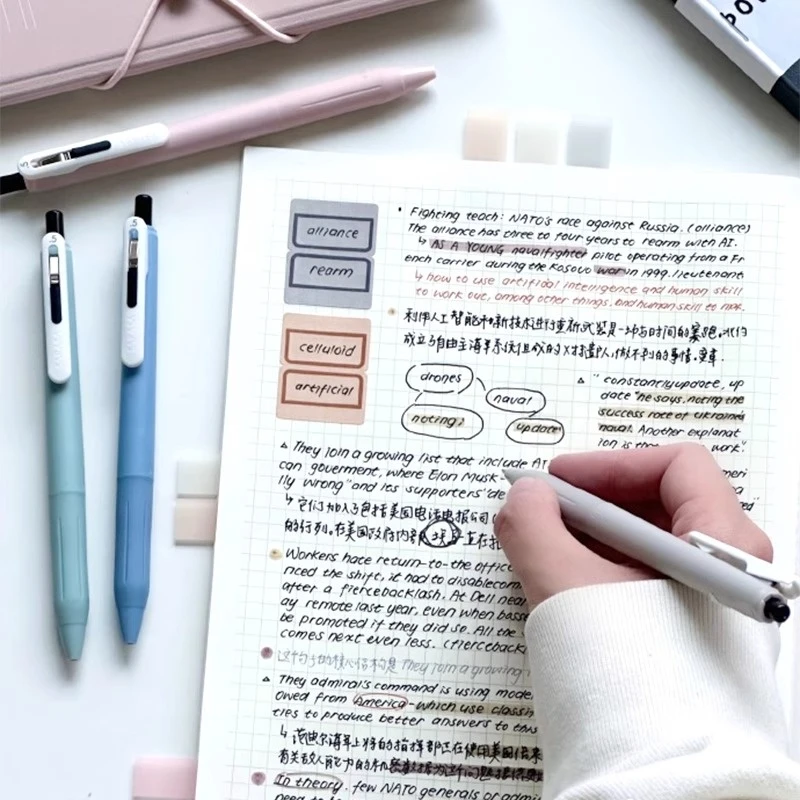 alliance
rearm
celluloid
artificial
• Fighting teach: NATO's race against Russia. (alliance)
The alliance has three to four years to rearm with AI.
↳ AS A YOUNG navalfighter pilot operating from a Fr
ench carrier during the Kosovo war in 1999. lieutenant
↳ how to use artificial intelligence and human skill
to work out, among other things,
利用人工智能和新技术进行重新武装是一场与时间的赛跑.
成立与自由主海军系统组成的
drones
naval
noting
update
▵ "constantlyupdate, up
date "he says, noting the
success race of ukraines
naval. Another explanat
ion is work".
▵ They join a growing list that include AT
can goverment, where Elon Musk
lly wrong" and its supporters'de
↳ 它们加入了包括美国电话电报公司
的行列. 在美国政府内部
Workers hate return-to-the office
nced the shift, it had to disablecom
after a fiercebacklash. At Dell near
ay remote last year, even when base
be promoted if they did so. All the
comes next even less. (fiercebackl
这句子的核心结构是 They join a growing
▵ They admiral's command is using mode
owed from America-which use classin
ties to produce better answers to this
↳ 海军上将的指挥部正在使用美国借来
有关敌人能力的
In theory. few NATO generals or admir
need to